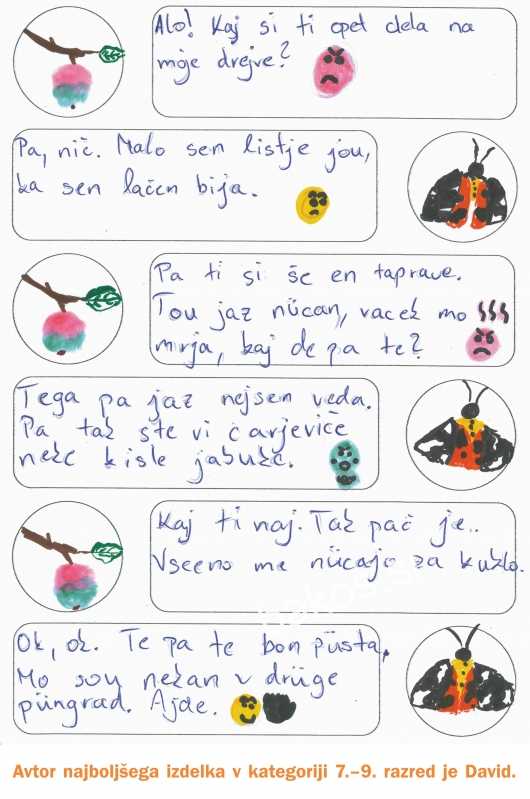 Alo! Kaj si ti opet dela na
moje drejve?
Pa, nič. Malo sen listje jou,
ka sen lačen bija.
Pa ti si še en taprave.
Tou jaz nücan, vacek mo
mrja, kaj de pa te?
Tega pa jaz nejsen veda.
Pa tak ste vi carjeviče
neke kisle jabuke.
Kaj ti naj. Tak pač je..
Vseeno me nücajo za kuklo.
Ok, ok. Te pa te bon püsta,
Mo šou nekan v drüge
püngrad. Ajde.
Avtor najboljšega izdelka v kategoriji 7.–9. razred je David.